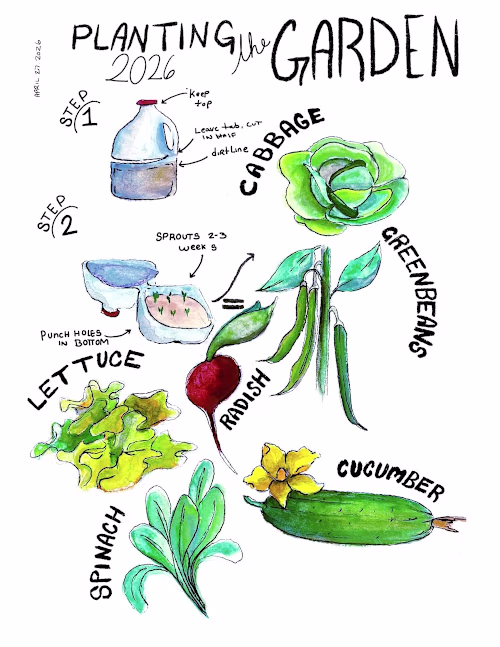 APRIL 27 2026
PLANTING the GARDEN
2026
STEP 1
keep
top
Leave tab, cut
in half
dirt line
CABBAGE
STEP 2
SPROUTS 2-3
weeks
GREENBEANS
=
PUNCH HOLES
IN BOTTOM
LETTUCE
RADISH
CUCUMBER
SPINACH